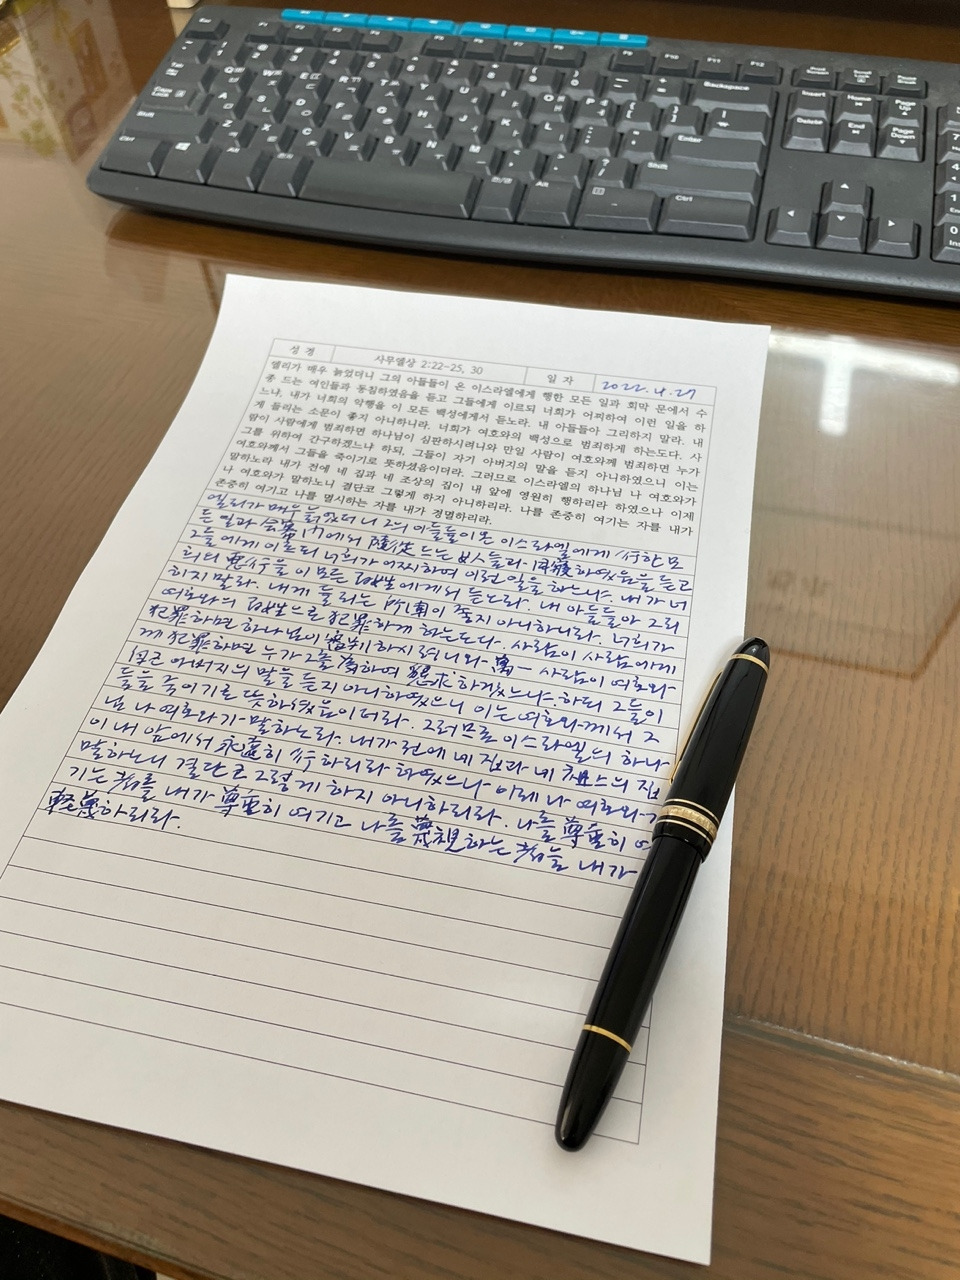 Backspace
Enter
Shift
Ctrl
Alt
Insert
Home
Page Up
Delete
End
Page Down
성 경 사무엘상 2:22-25, 30 일 자 2022.4.27
엘리가 매우 늙었더니 그의 아들들이 온 이스라엘에게 행한 모든 일과 회막 문에서 수
종 드는 여인들과 동침하였음을 듣고 그들에게 이르되 너희가 어찌하여 이런 일을 하
느냐. 내가 너희의 악행을 이 모든 백성에게서 듣노라. 내 아들들아 그리하지 말라. 내
게 들리는 소문이 좋지 아니하니라. 너희가 여호와의 백성으로 범죄하게 하는도다. 사
람이 사람에게 범죄하면 하나님이 심판하시려니와 만일 사람이 여호와께 범죄하면 누가
그를 위하여 간구하겠느냐 하되, 그들이 자기 아버지의 말을 듣지 아니하였으니 이는
여호와께서 그들을 죽이기로 뜻하셨음이더라. 그러므로 이스라엘의 하나님 나 여호와가
말하노라 내가 전에 네 집과 네 조상의 집이 내 앞에 영원히 행하리라 하였으나 이제
나 여호와가 말하노니 결단코 그렇게 하지 아니하리라. 나를 존중히 여기는 자를 내가
존중히 여기고 나를 멸시하는 자를 내가 경멸하리라.
엘리가 매우 늙었더니 그의 아들들이 온 이스라엘에게 行한 모
든 일과 會幕 門에서 隨從 드는 女人들과 同寢하였음을 듣고
그들에게 이르되 너희가 어찌하여 이런 일을 하느냐. 내가 너
희의 惡行을 이 모든 百姓에게서 듣노라. 내 아들들아 그리
하지 말라. 내게 들리는 所聞이 좋지 아니하니라. 너희가
여호와의 百姓으로 犯罪하게 하는도다. 사람이 사람에게
犯罪하면 하나님이 審判하시려니와 萬一 사람이 여호와
께 犯罪하면 누가 그를 爲하여 懇求하겠느냐 하되 그들이
아버지의 말을 듣지 아니하였으니 이는 여호와께서 그
들을 죽이기로 뜻하셨음이더라. 그러므로 이스라엘의 하나
님 나 여호와가 말하노라. 내가 전에 네 집과 네 祖上의 집
이 내 앞에서 永遠히 行하리라 하였으나 이제 나 여호와가
말하노니 결단코 그렇게 하지 아니하리라. 나를 尊重히 여
기는 者를 내가 尊重히 여기고 나를 蔑視하는 者를 내가
輕蔑하리라.